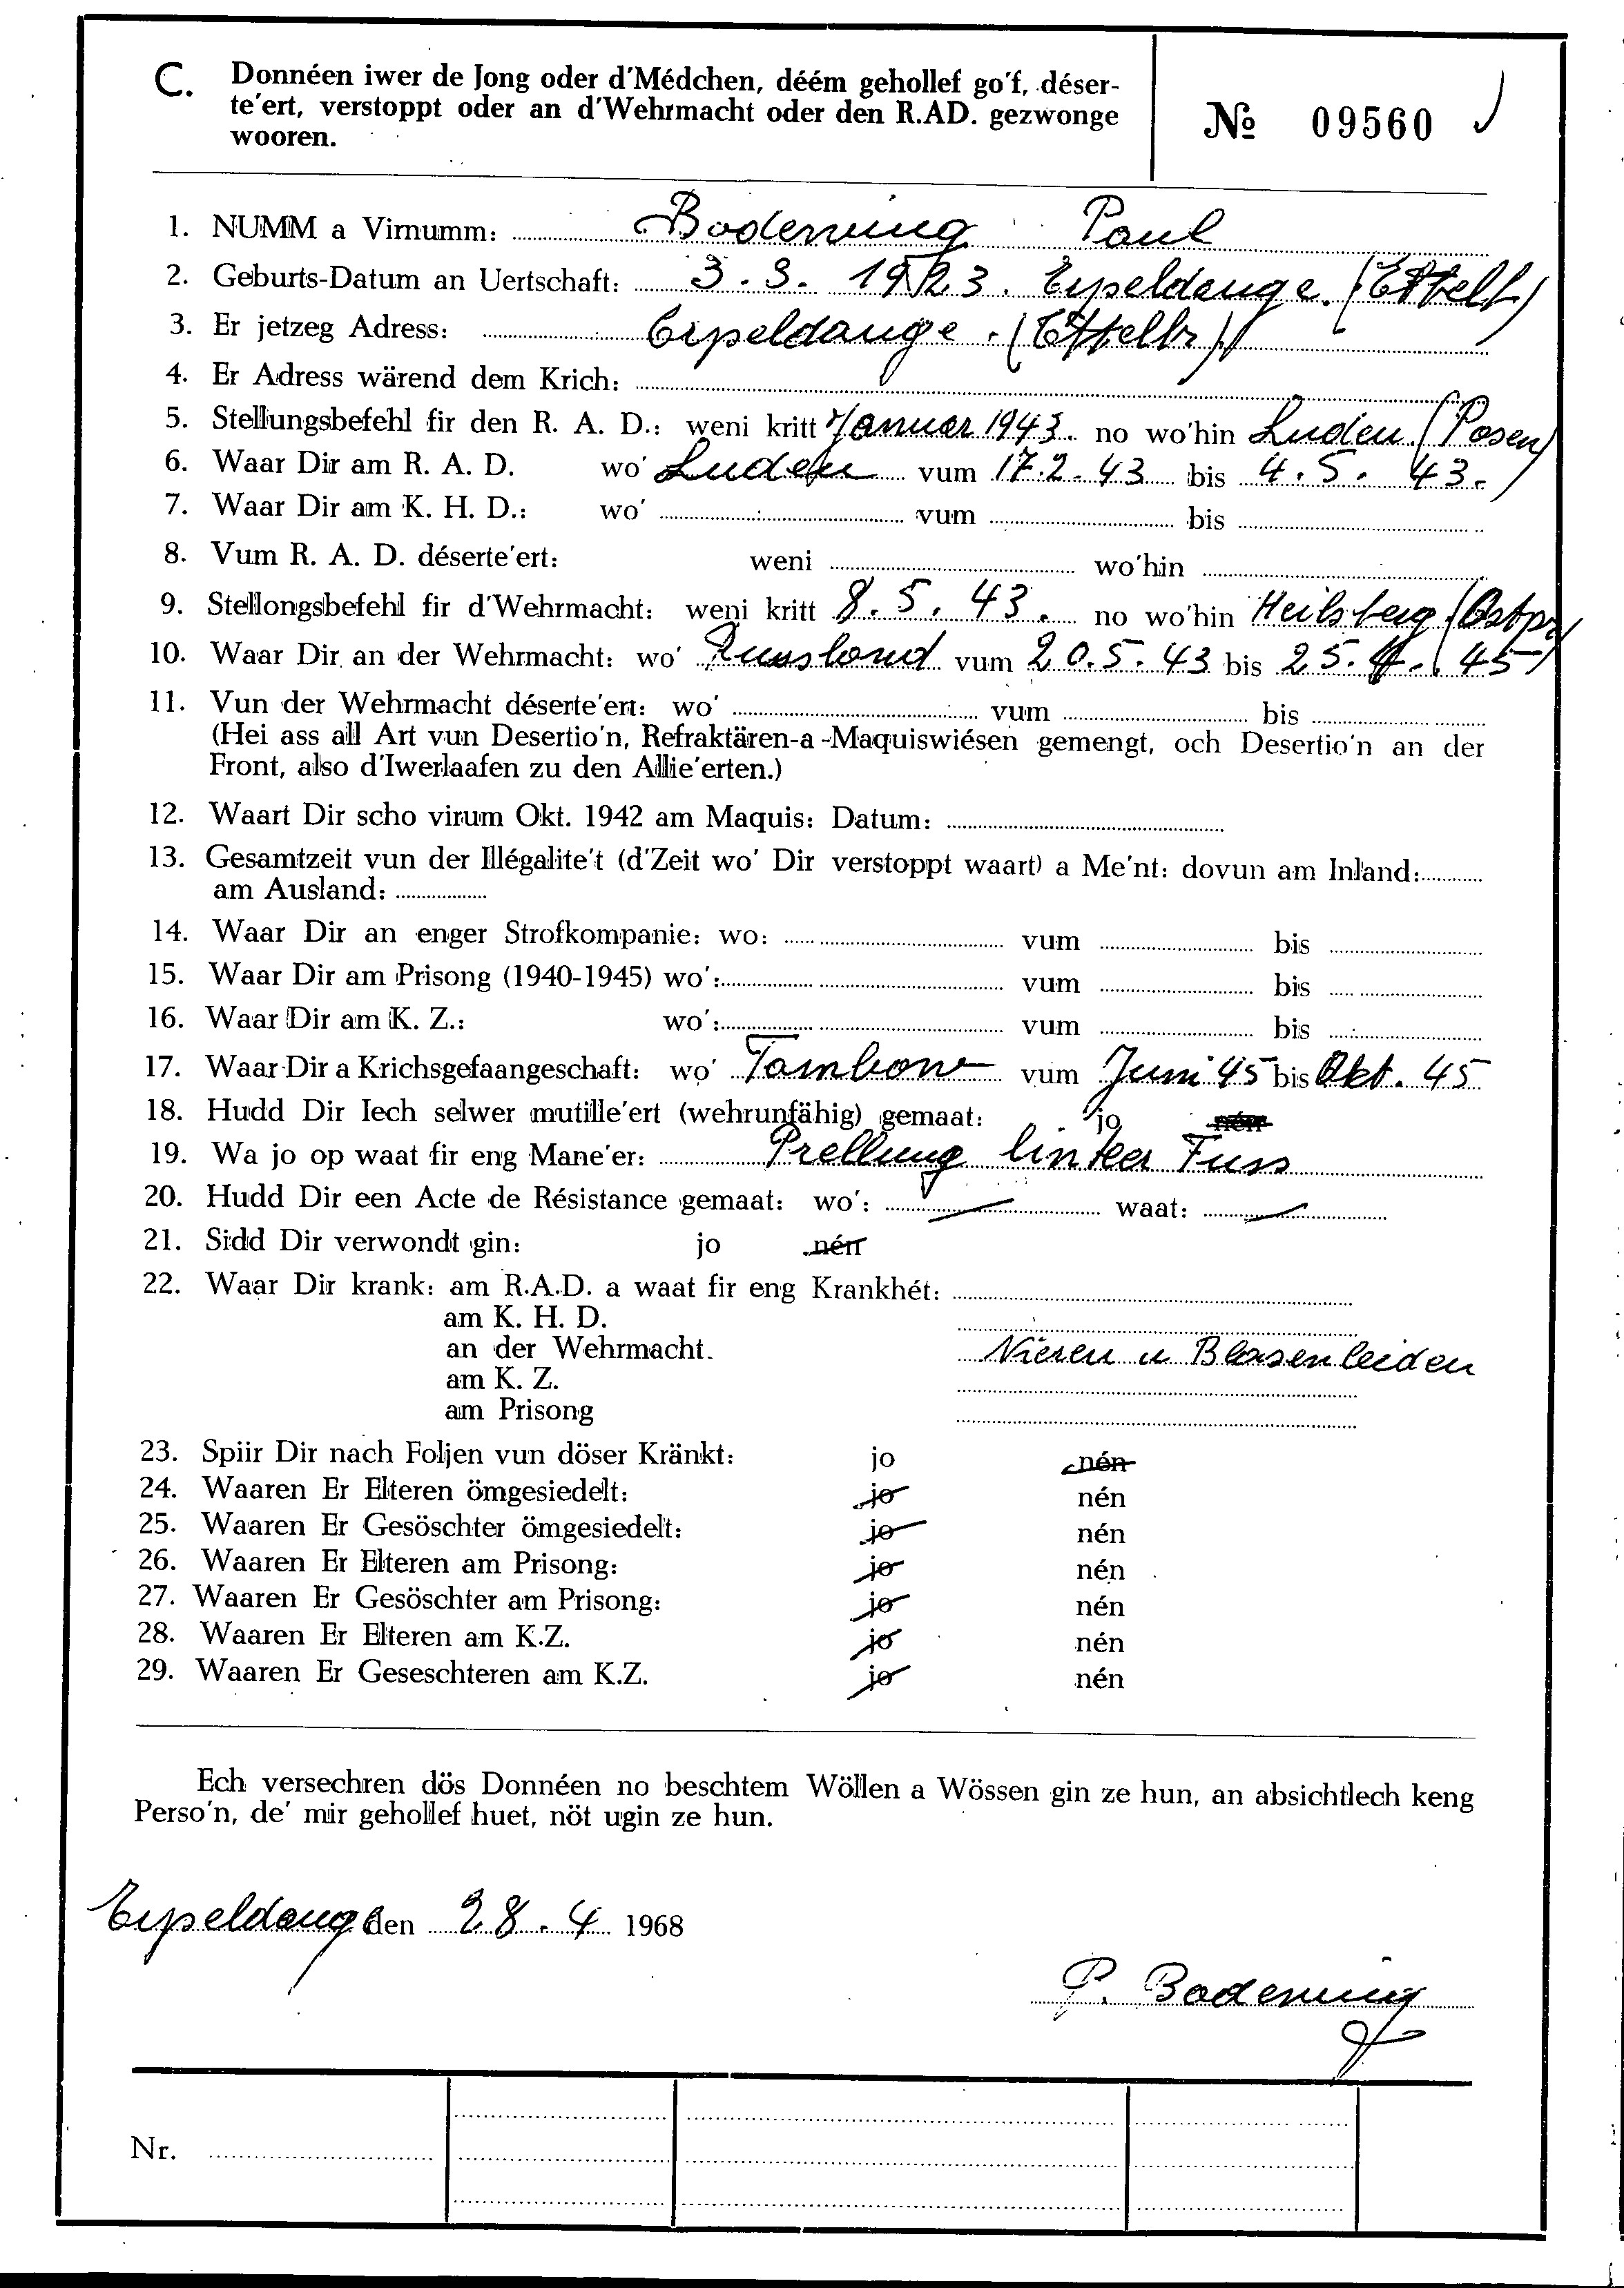 C. Donnéen iwer de Jong oder d'Médchen, déém gehollef go'f, déser-
te'ert, verstoppt oder an d'Wehrmacht oder den R.AD. gezwonge
wooren.
№ 09560
1. NUMM a Virnumm: Bodenving Paul
2. Geburts-Datum an Uertschaft: 3.3.1923. Erpeldange. (Ettelb)
3. Er jetzeg Adress: Erpeldange. (Ettelbr)
4. Er Adress wärend dem Krich:
5. Stellungsbefehl fir den R. A. D.: weni kritt Januar 1943. no wo'hin Luden (Posen)
6. Waar Dir am R. A. D. wo' Luden vum 17.2.43 bis 4.5.43.
7. Waar Dir am K. H. D.: wo' vum bis
8. Vum R. A. D. déserte'ert: weni wo'hin
9. Stellongsbefehl fir d'Wehrmacht: weni kritt 8.5.43. no wo'hin Heilsberg (Ostpr)
10. Waar Dir an der Wehrmacht: wo' Russland vum 20.5.43 bis 25.4.45
11. Vun der Wehrmacht déserte'ert: wo' vum bis
(Hei ass all Art vun Desertio'n, Refraktären-a-Maquiswiésen gemengt, och Desertio'n an der
Front, also d'Iwerlaafen zu den Allie'erten.)
12. Waart Dir scho virum Okt. 1942 am Maquis: Datum:
13. Gesamtzeit vun der Illégalite't (d'Zeit wo' Dir verstoppt waart) a Me'nt: dovun am Inland:
am Ausland:
14. Waar Dir an enger Strofkompanie: wo: vum bis
15. Waar Dir am Prisong (1940-1945) wo': vum bis
16. Waar Dir am K. Z.: wo': vum bis
17. Waar Dir a Krichsgefaangeschaft: wo' Tambow vum Juni 45 bis Okt. 45
18. Hudd Dir Iech selwer mutille'ert (wehrunfähig) gemaat: jo nén
19. Wa jo op waat fir eng Mane'er: Prellung linker Fuss
20. Hudd Dir een Acte de Résistance gemaat: wo': waat:
21. Sidd Dir verwondt gin: jo nén
22. Waar Dir krank: am R.A.D. a waat fir eng Krankhét:
am K. H. D.
an der Wehrmacht. Nieren u Blasenleiden
am K. Z.
am Prisong
23. Spiir Dir nach Foljen vun döser Kränkt: jo nén
24. Waaren Er Elteren ömgesiedelt: jo nén
25. Waaren Er Gesöschter ömgesiedelt: jo nén
26. Waaren Er Elteren am Prisong: jo nén
27. Waaren Er Gesöschter am Prisong: jo nén
28. Waaren Er Elteren am K.Z. jo nén
29. Waaren Er Geseschteren am K.Z. jo nén
Ech versechren dös Donnéen no beschtem Wöllen a Wössen gin ze hun, an absichtlech keng
Perso'n, de' mir gehollef huet, nöt ugin ze hun.
Erpeldange den 28.4 1968
P. Bodenving
Nr.